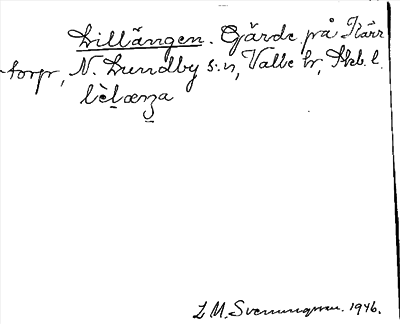 Lillängen. Gärde på Kärr
-torp, N. Lundby s:n, Valle hr, Skb. l.
L M. Svenungsson. 1946.